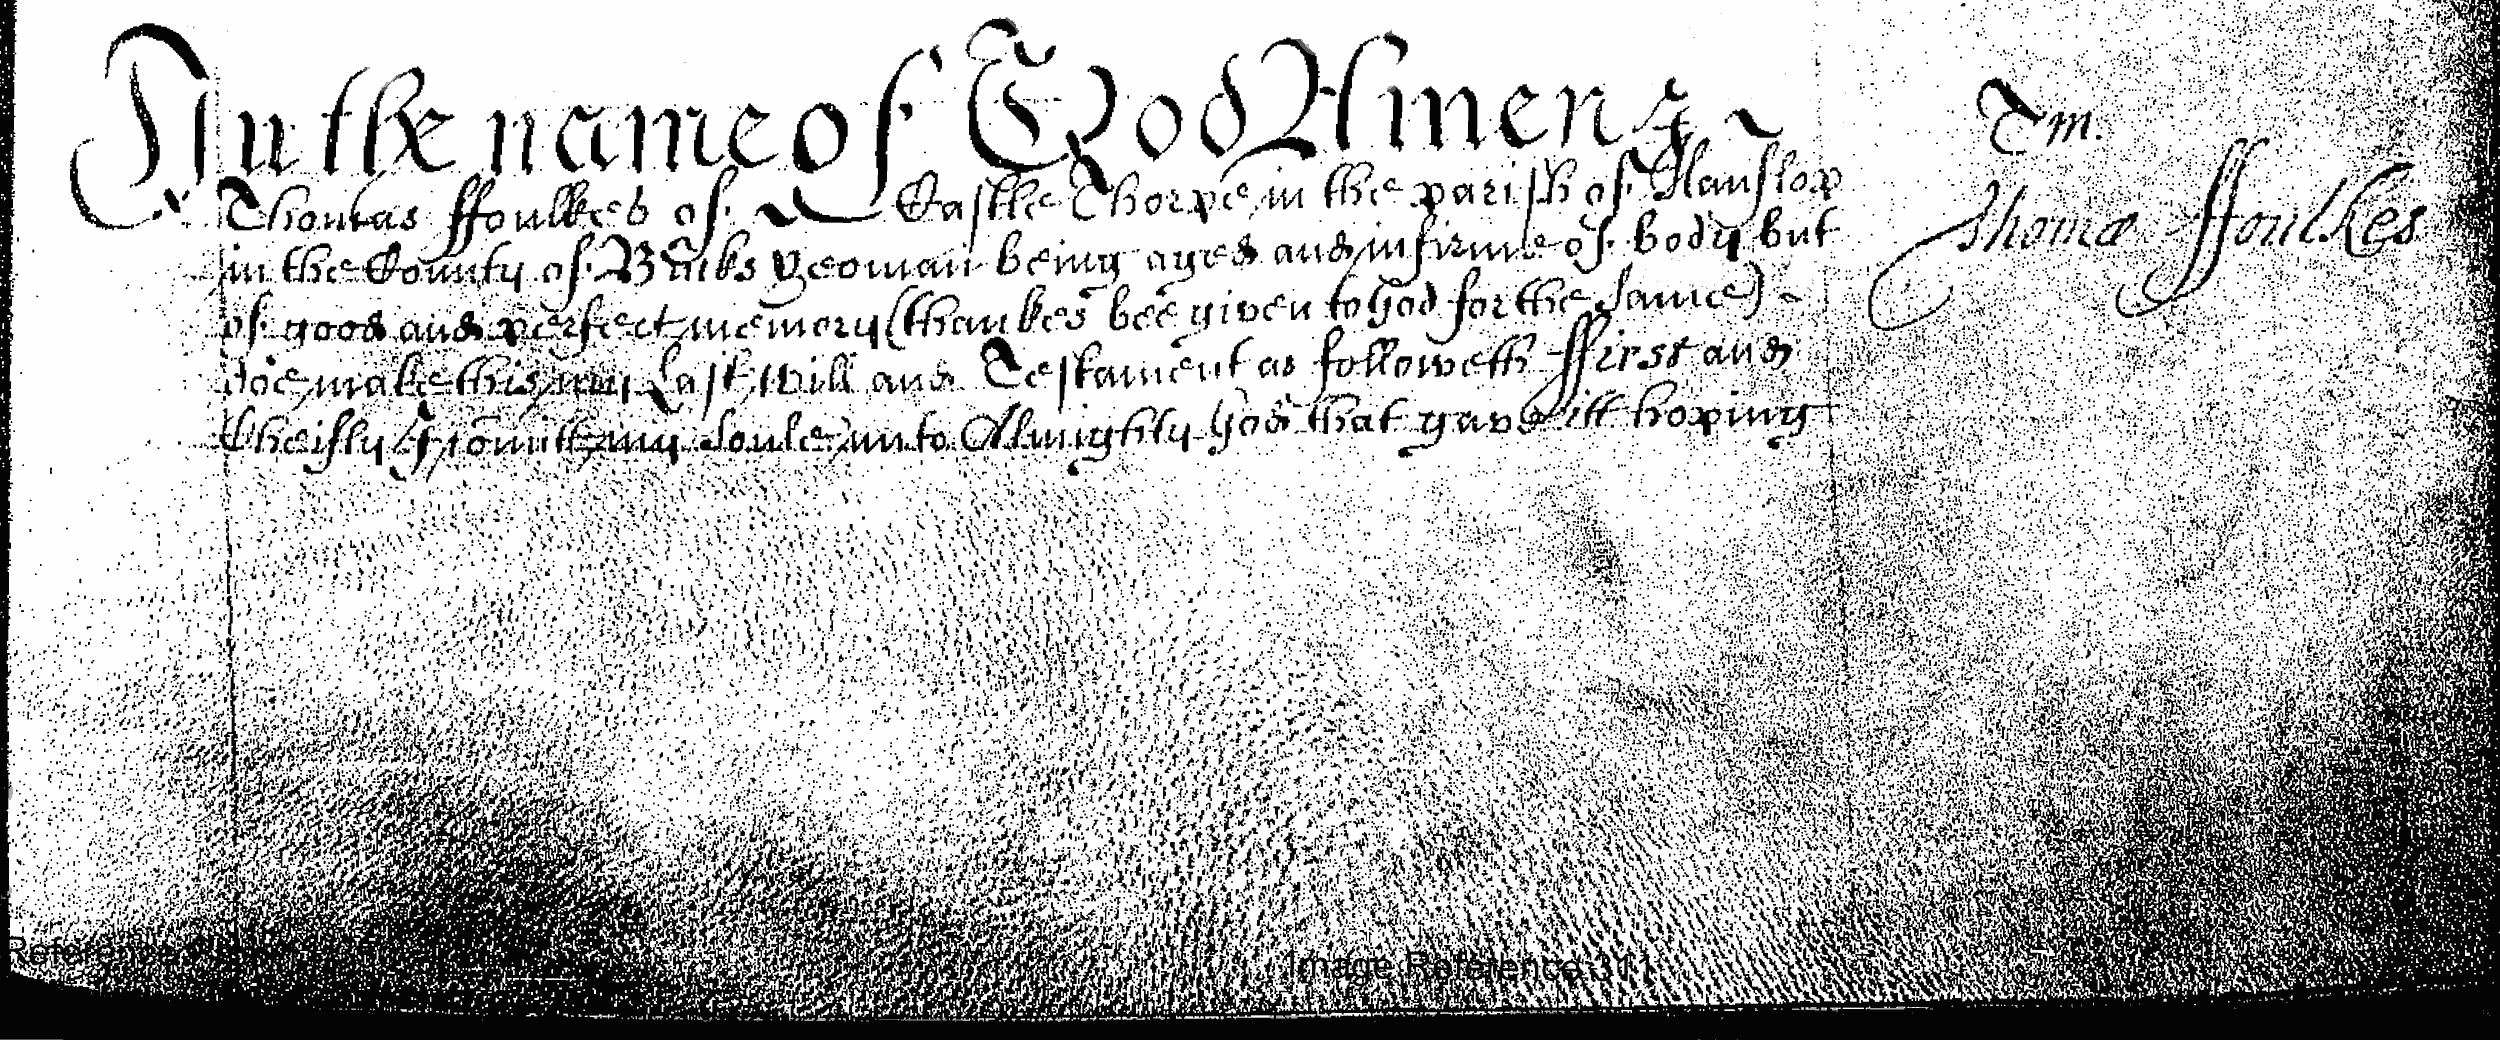 In the name of God Amen I
Thomas ffoulkes of Castle Thorpe in the parish of Hanslop
in the County of Bucks Yeoman being aged and infirme of body but
of good and perfect memory (thankes bee given to God for the same)
doe make this my Last Will and Testament as followeth ffirst and
Cheifly I comitt my soule unto Almighty God that gave itt hoping
Tm.
Thomæ ffoulkes
Image Reference 311